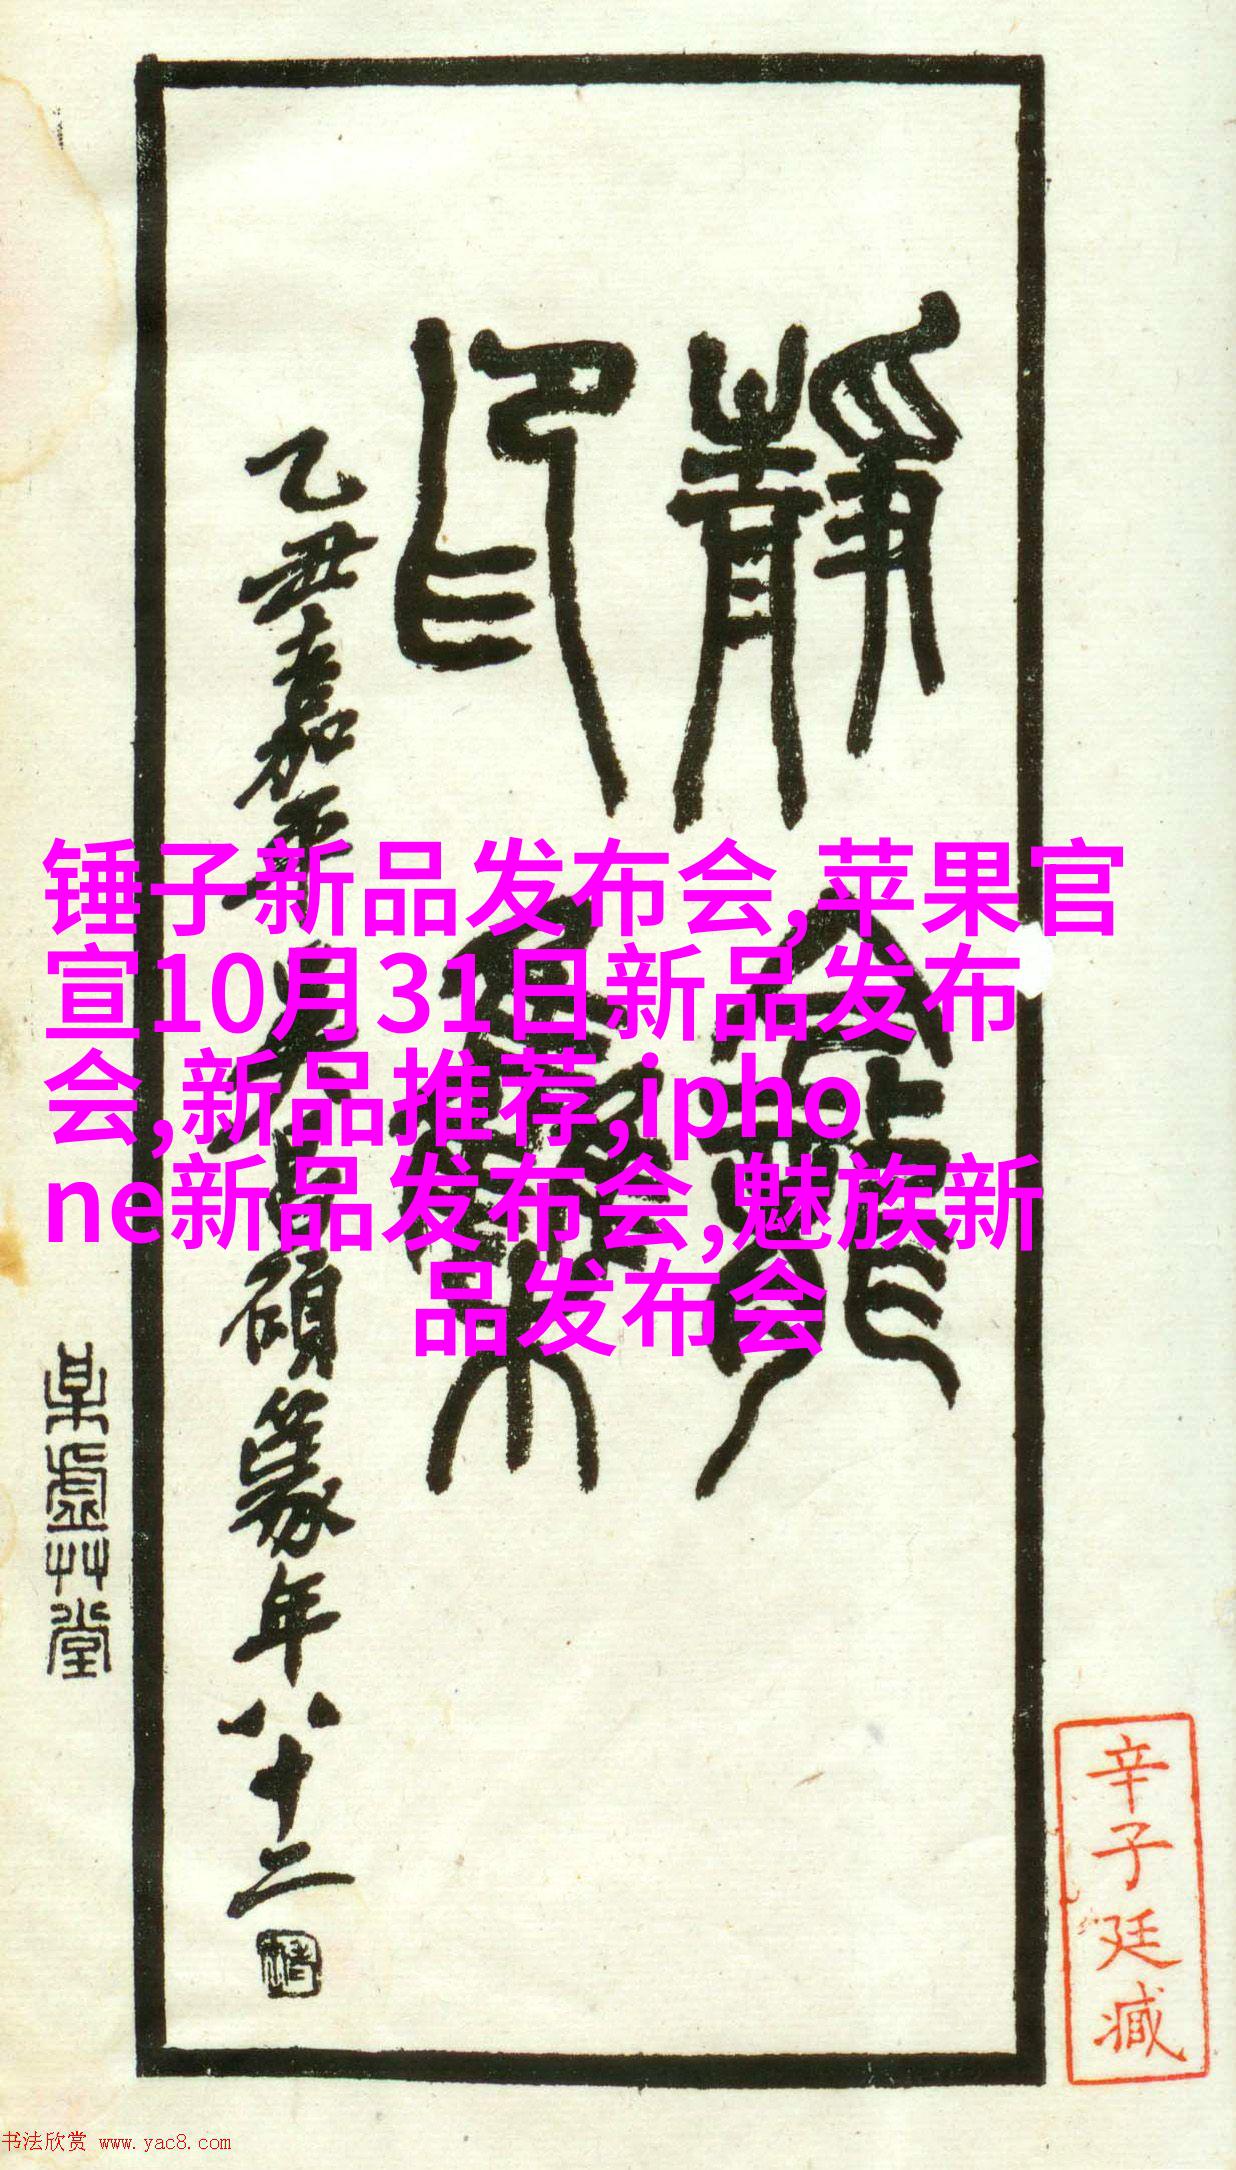 靜龕
印集
乙丑嘉平月吳昌碩篆年八十二
某虛艸堂
锤子新品发布会,苹果官
宣10月31日新品发布
会,新品推荐,ipho
ne新品发布会,魅族新
品发布会
辛子廷臧
书法欣赏 www.yac8.com